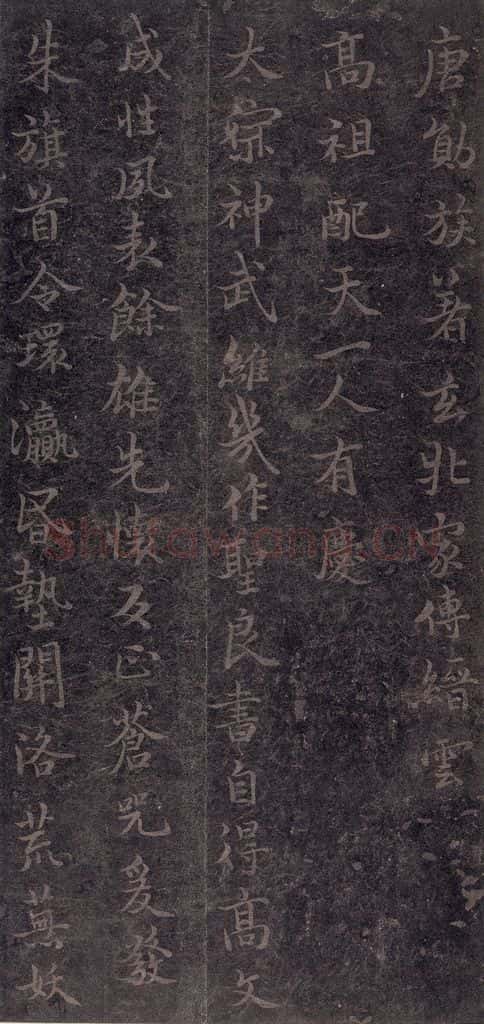 唐勛族著玄丠家傳縉雲
高祖配天一人有慶
太宗神武維幾作聖良書自得高文
成性夙表餘雄先懷反正蒼兕爰發
朱旗首令環瀛昏墊關洛荒蕪妖
Shufawang.CN